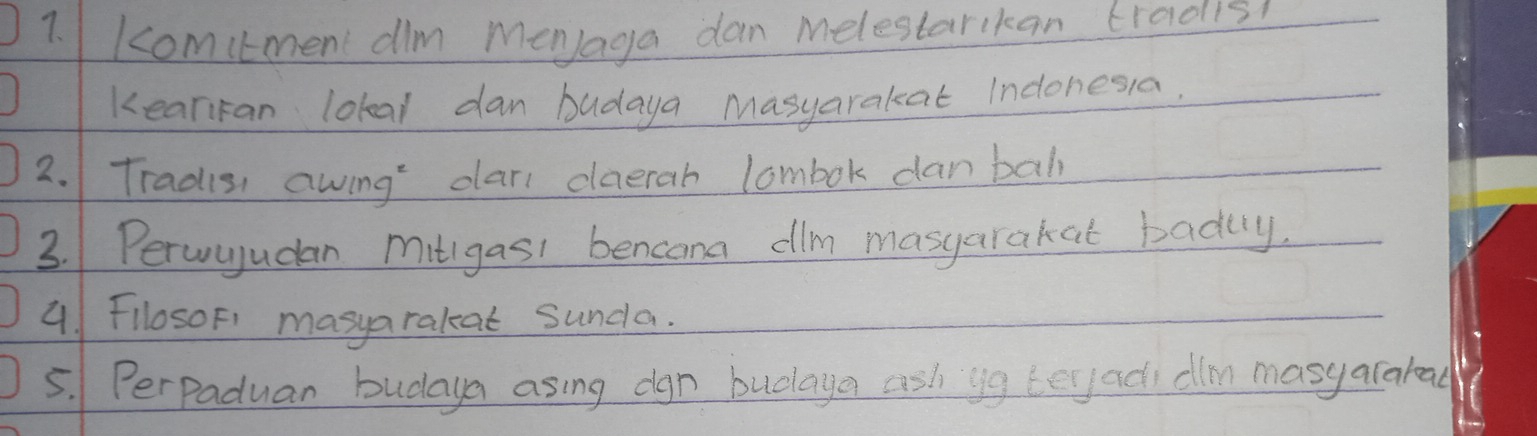 1. Komitmen dlm menjaga dan melestarikan tradisi
Kearifan lokal dan budaya masyarakat Indonesia.
2. Tradisi awing² dari daerah lombok dan bali
3. Perwujudan mitigasi bencana dlm masyarakat baduy.
4. Filosofi masyarakat sunda.
5. Perpaduan budaya asing dgn budaya asli yg terjadi dlm masyarakat